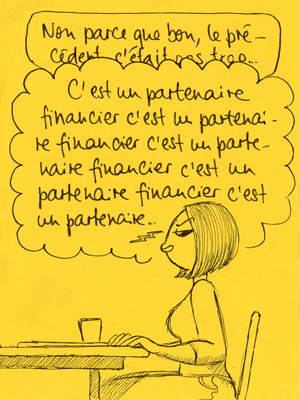 Non parce que bon, le pré-
cédent, c'était pas trop...
C'est un partenaire
financier c'est un partenai-
re financier c'est un parte-
naire financier c'est un
partenaire financier c'est
un partenaire...